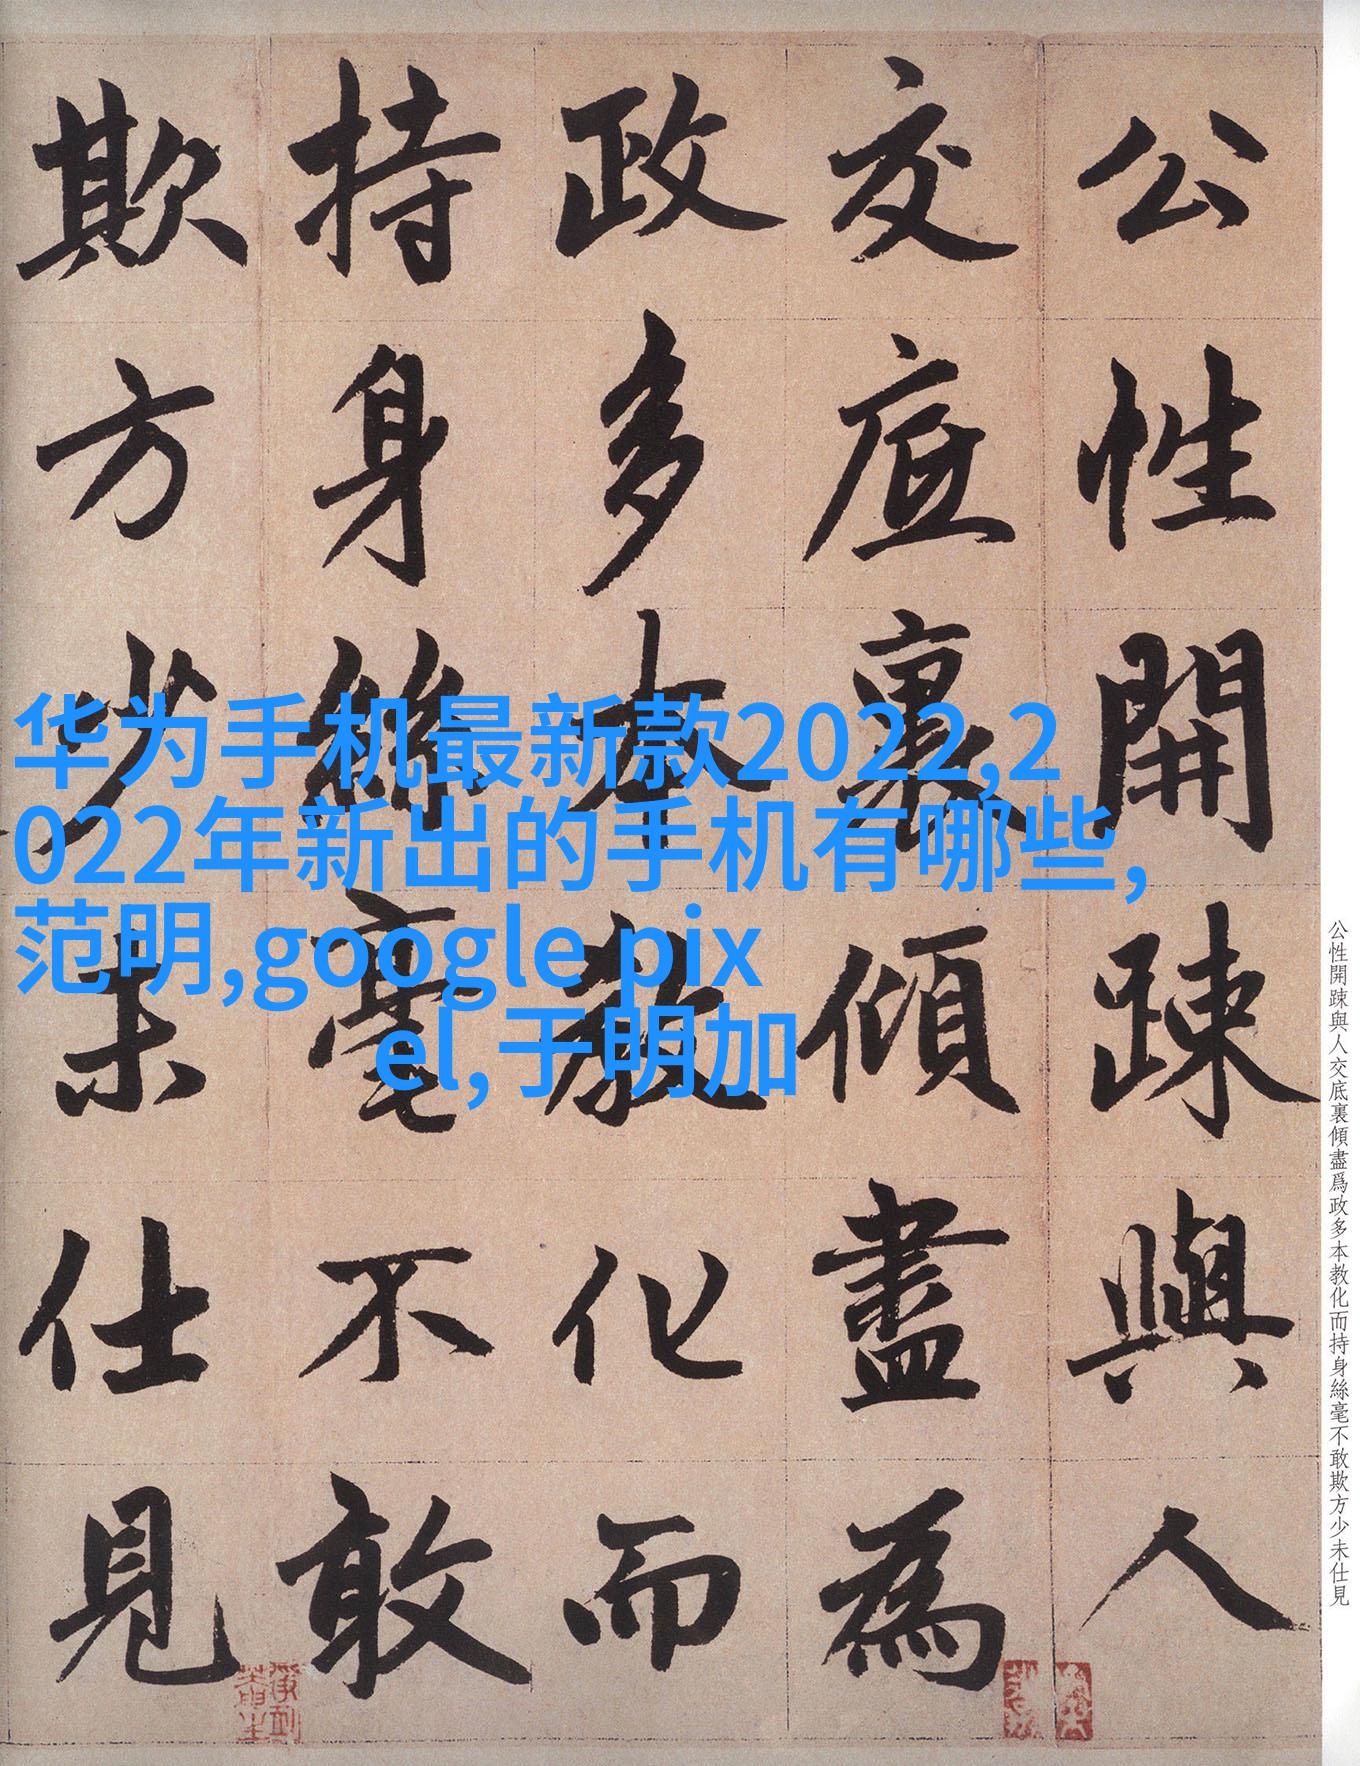 公性開踈與人
交底裏傾盡為
政多本教化而
持身絲毫不敢
欺方少未仕見
华为手机最新款2022,2
022年新出的手机有哪些,
范明,google pix
el,于明加
公性開踈與人交底裏傾盡爲政多本教化而持身絲毫不敢欺方少未仕見